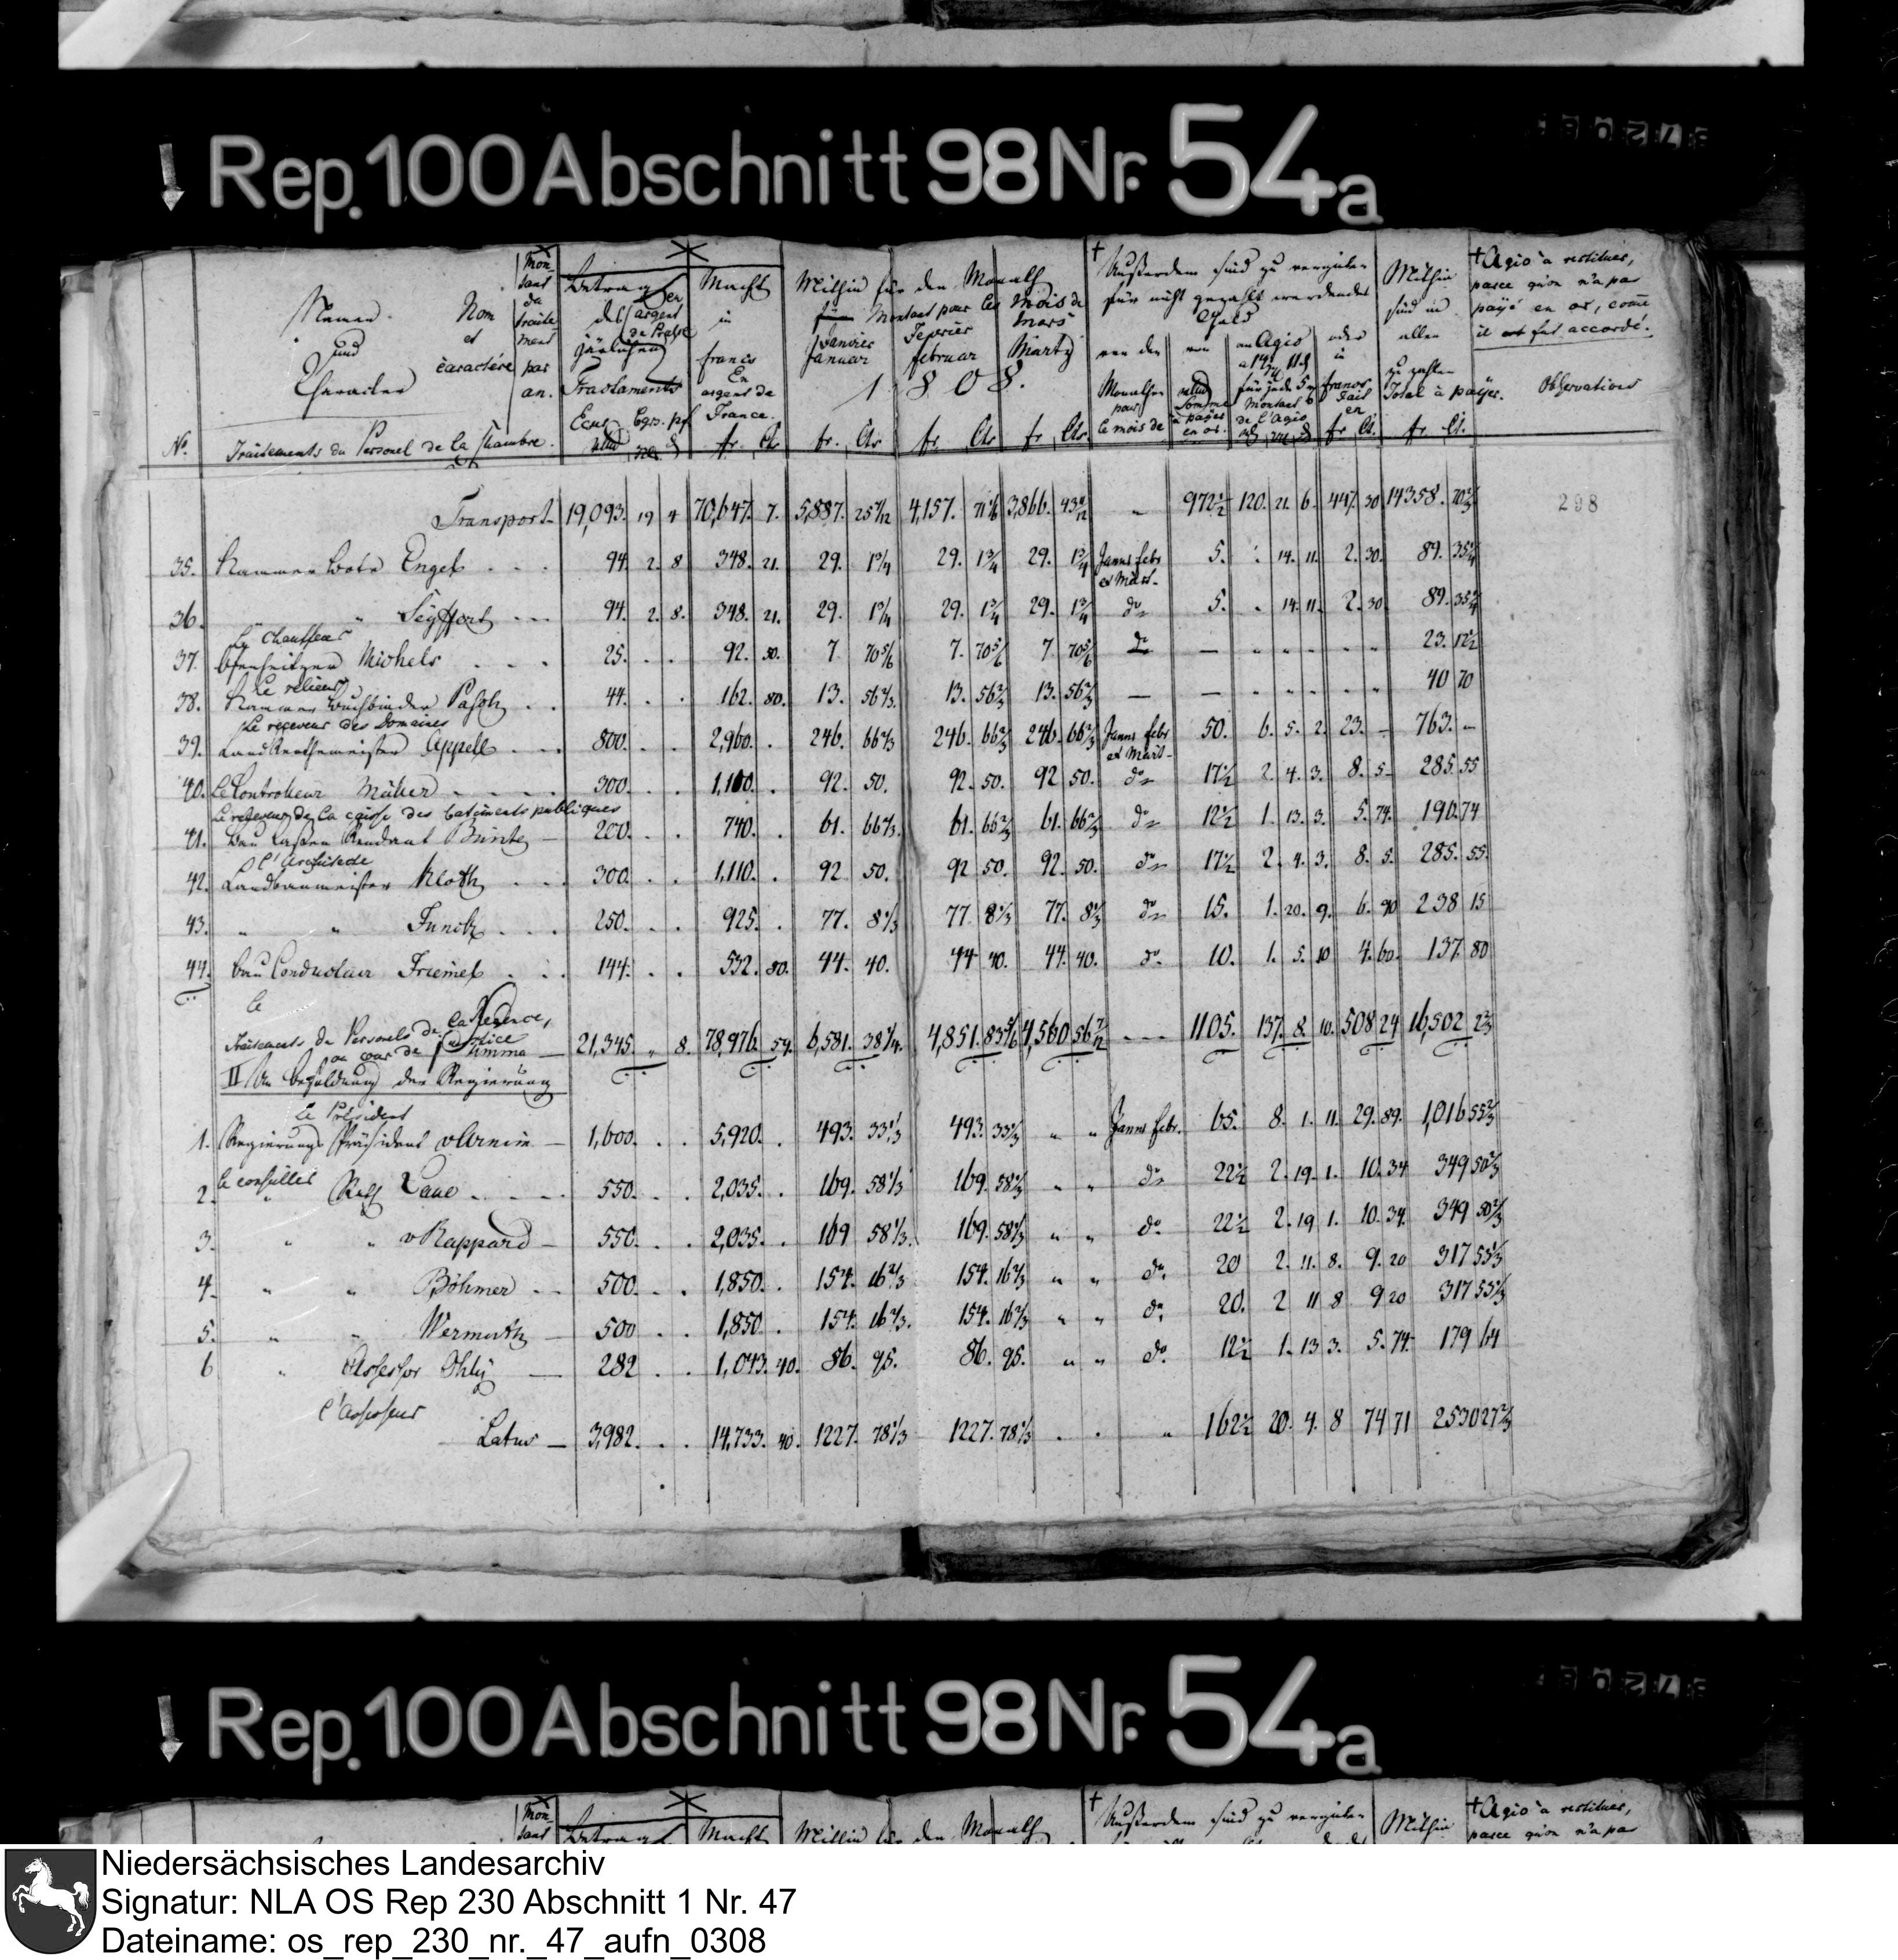 Rep. 100 Abschnitt 98 Nr. 54a
Namen und Character
Nom et caractére
Montant du traitement par an.
Betrag des jährlichen Tractaments
en argent de Prusse
Ecus bgr. pf.
Macht in francs
En argent de France.
fr. Cts
Mithin für den Monath
Montant pour les mois de
Janvier Fevrier Mars
Januar februar Martz
1 8 0 8.
fr. Cts fr. Cts fr. Cts
† Außerdem sind zu vergüten
für nicht gezahlt werdendes Gold
von den Monathen
pour le mois de
Somme à payer en or.
an Agio
für jede 5
Montant de l'agio
oder in francs
Fait en
fr. Ct.
Mithin sind in allen zu zahlen
Total à payer.
fr. Ct.
† Agio à restituer,
parce qu'on n'a pas
payé en or, come
il est fut accordé.
Observations
No. Traitements du Personel de la Chambre.
Transport 19,093. 19 4 70,647. 7. 5,887. 25 7/12 4,157. 71 1/6 3,866. 43 11/12 " 972 1/2 120. 21. 6. 447. 30 14358. 70 2/3
298
35. Kammer bote Engel 94. 2. 8 348. 21. 29. 1 3/4 29. 1 3/4 29. 1 3/4 Janv febr et Mart. 5. . 14. 11. 2. 30. 89. 35 1/4
36. " Seyffert 94. 2. 8. 348. 21. 29. 1 3/4 29. 1 3/4 29. 1 3/4 do 5. . 14. 11. 2. 30 89. 35 1/4
Le chauffeur
37. Ofenheitzer Michels 25. . . 92. 50. 7. 70 5/6 7. 70 5/6 7. 70 5/6 do — " " " " " 23. 12 1/2
Le relieur
38. Kammer Buchbinder Pasch 44. . . 162. 80. 13. 56 2/3. 13. 56 2/3 13. 56 2/3 — — " " " " " 40 70
Le receveur des Domaines
39. Landrentemeister Appell 800. . . 2,960. . 246. 66 2/3 246. 66 2/3 246. 66 2/3 Janv febr et Mart. 50. 6. 5. 2. 23. — 763. —
40. Le Controlleur Müller 300. . . 1,110. . 92. 50. 92. 50. 92 50. do 17 1/2 2. 4. 3. 8. 5. 285. 55
Le receveur de la caisse des batiments publiques
41. Bau Cassen Rendant Brinte 200. . . 740. . 61. 66 2/3. 61. 66 2/3 61. 66 2/3 do 12 1/2 1. 13. 3. 5. 74. 190. 74
l'architecte
42. Landbaumeister Kloth 300. . . 1,110. . 92 50. 92 50. 92. 50. do 17 1/2 2. 4. 3. 8. 5. 285. 55.
43. " " Funck 250. . . 925. . 77. 8 1/3 77. 8 1/3 77. 8 1/3 do 15. 1. 20. 9. 6. 90 238 15
44. Bau Conducteur Friemel 144. . . 532. 80. 44. 40. 44 40. 44. 40. do. 10. 1. 5. 10 4. 60. 137. 80
Le
Traitements du Personels de la Regence,
ou cour de justice
Summa 21,345. " 8. 78,976. 59. 6,581. 38 1/4. 4,851. 83 5/6 4,560 56 7/12 --- 1105. 137. 8. 10. 508 24 16,502 2 2/3
II An besoldung der Regierung
Le Président
1. Regierungs Präsident v Arnim 1,600. . . 5,920. . 493. 33 1/3 493. 33 1/3 " " Janv febr. 65. 8. 1. 11. 29. 89. 1,016 55 2/3
le conseiller
2. " Rath Laue 550. . . 2,035. . 169. 58 1/3 169. 58 1/3 " " do 22 1/2 2. 19. 1. 10. 34 349 50 2/3
3. " " v Rappard 550. . . 2,035. . 169 58 1/3. 169. 58 1/3 " " do. 22 1/2 2. 19 1. 10. 34. 349 50 2/3
4. " " Böhmer 500. . . 1,850. . 154. 16 2/3 154. 16 2/3 " " do. 20 2. 11. 8. 9. 20 317 53 1/3
5. " " Wermuth 500 . . 1,850. . 154. 16 2/3. 154. 16 2/3 " " do. 20. 2 11 8 9 20 317 53 1/3
6 " Assessor Ohly 282 . . 1,043. 40. 86. 95. 86. 95. " " do. 12 1/2 1. 13 3. 5. 74. 179 64
l'assesseur
Latus 3,982. . . 14,733. 40. 1227. 78 1/3 1227. 78 1/3 . . " 162 1/2 20. 4. 8 74 71 2530 27 2/3
Rep. 100 Abschnitt 98 Nr. 54a
Betrag Macht Mithin für den Monath
† Außerdem sind zu vergüten
Mithin
† Agio à restituer,
parce qu'on n'a pas
Niedersächsisches Landesarchiv
Signatur: NLA OS Rep 230 Abschnitt 1 Nr. 47
Dateiname: os_rep_230_nr._47_aufn_0308